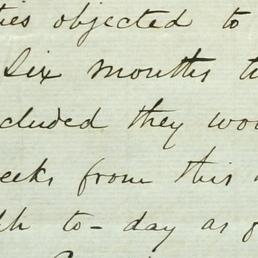 ties objected to
Six months t
cluded they wou
eeks from this
th to-day as